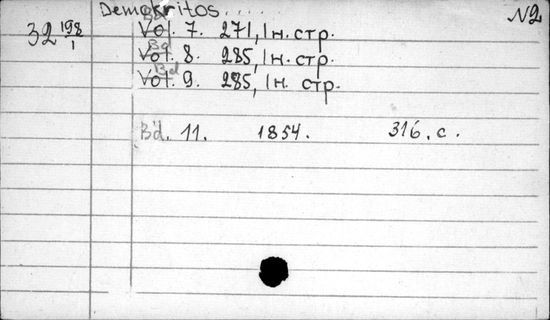 Demokritos..... N2
32 198/1 Vol. Bd 7. 271, 1н. стр.
Vol. Bd 8. 285, 1н. стр.
Vol. Bd 9. 285, 1н. стр.
Bd. 11. 1854. 316. с.